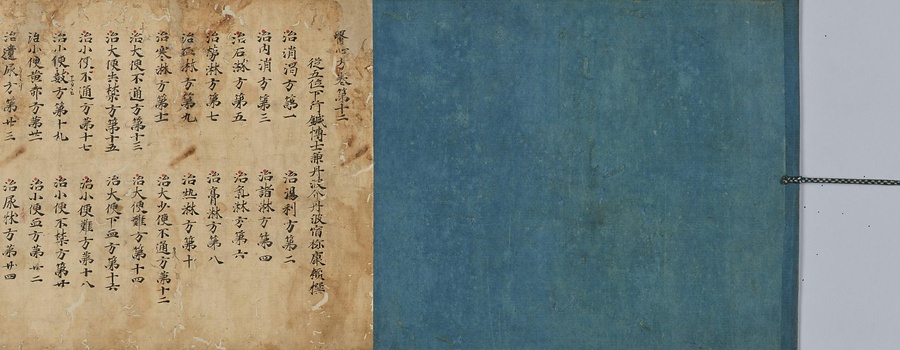 醫心方卷第十二
從五位下行鍼博士兼丹波介丹波宿祢康頼撰
治消渇方第一
治渇利方第二
治内消方第三
治諸淋方第四
治石淋方第五
治氣淋方第六
治勞淋方第七
治膏淋方第八
治血淋方第九
治熱淋方第十
治寒淋方第十一
治大小便不通方第十二
治大便不通方第十三
治大便難方第十四
治大便失禁方第十五
治大便下血方第十六
治小便不通方第十七
治小便難方第十八
治小便數方第十九
治小便不禁方第廿
治小便黄赤方第廿一
治小便血方第廿二
治遺尿方第廿三
治尿床方第廿四